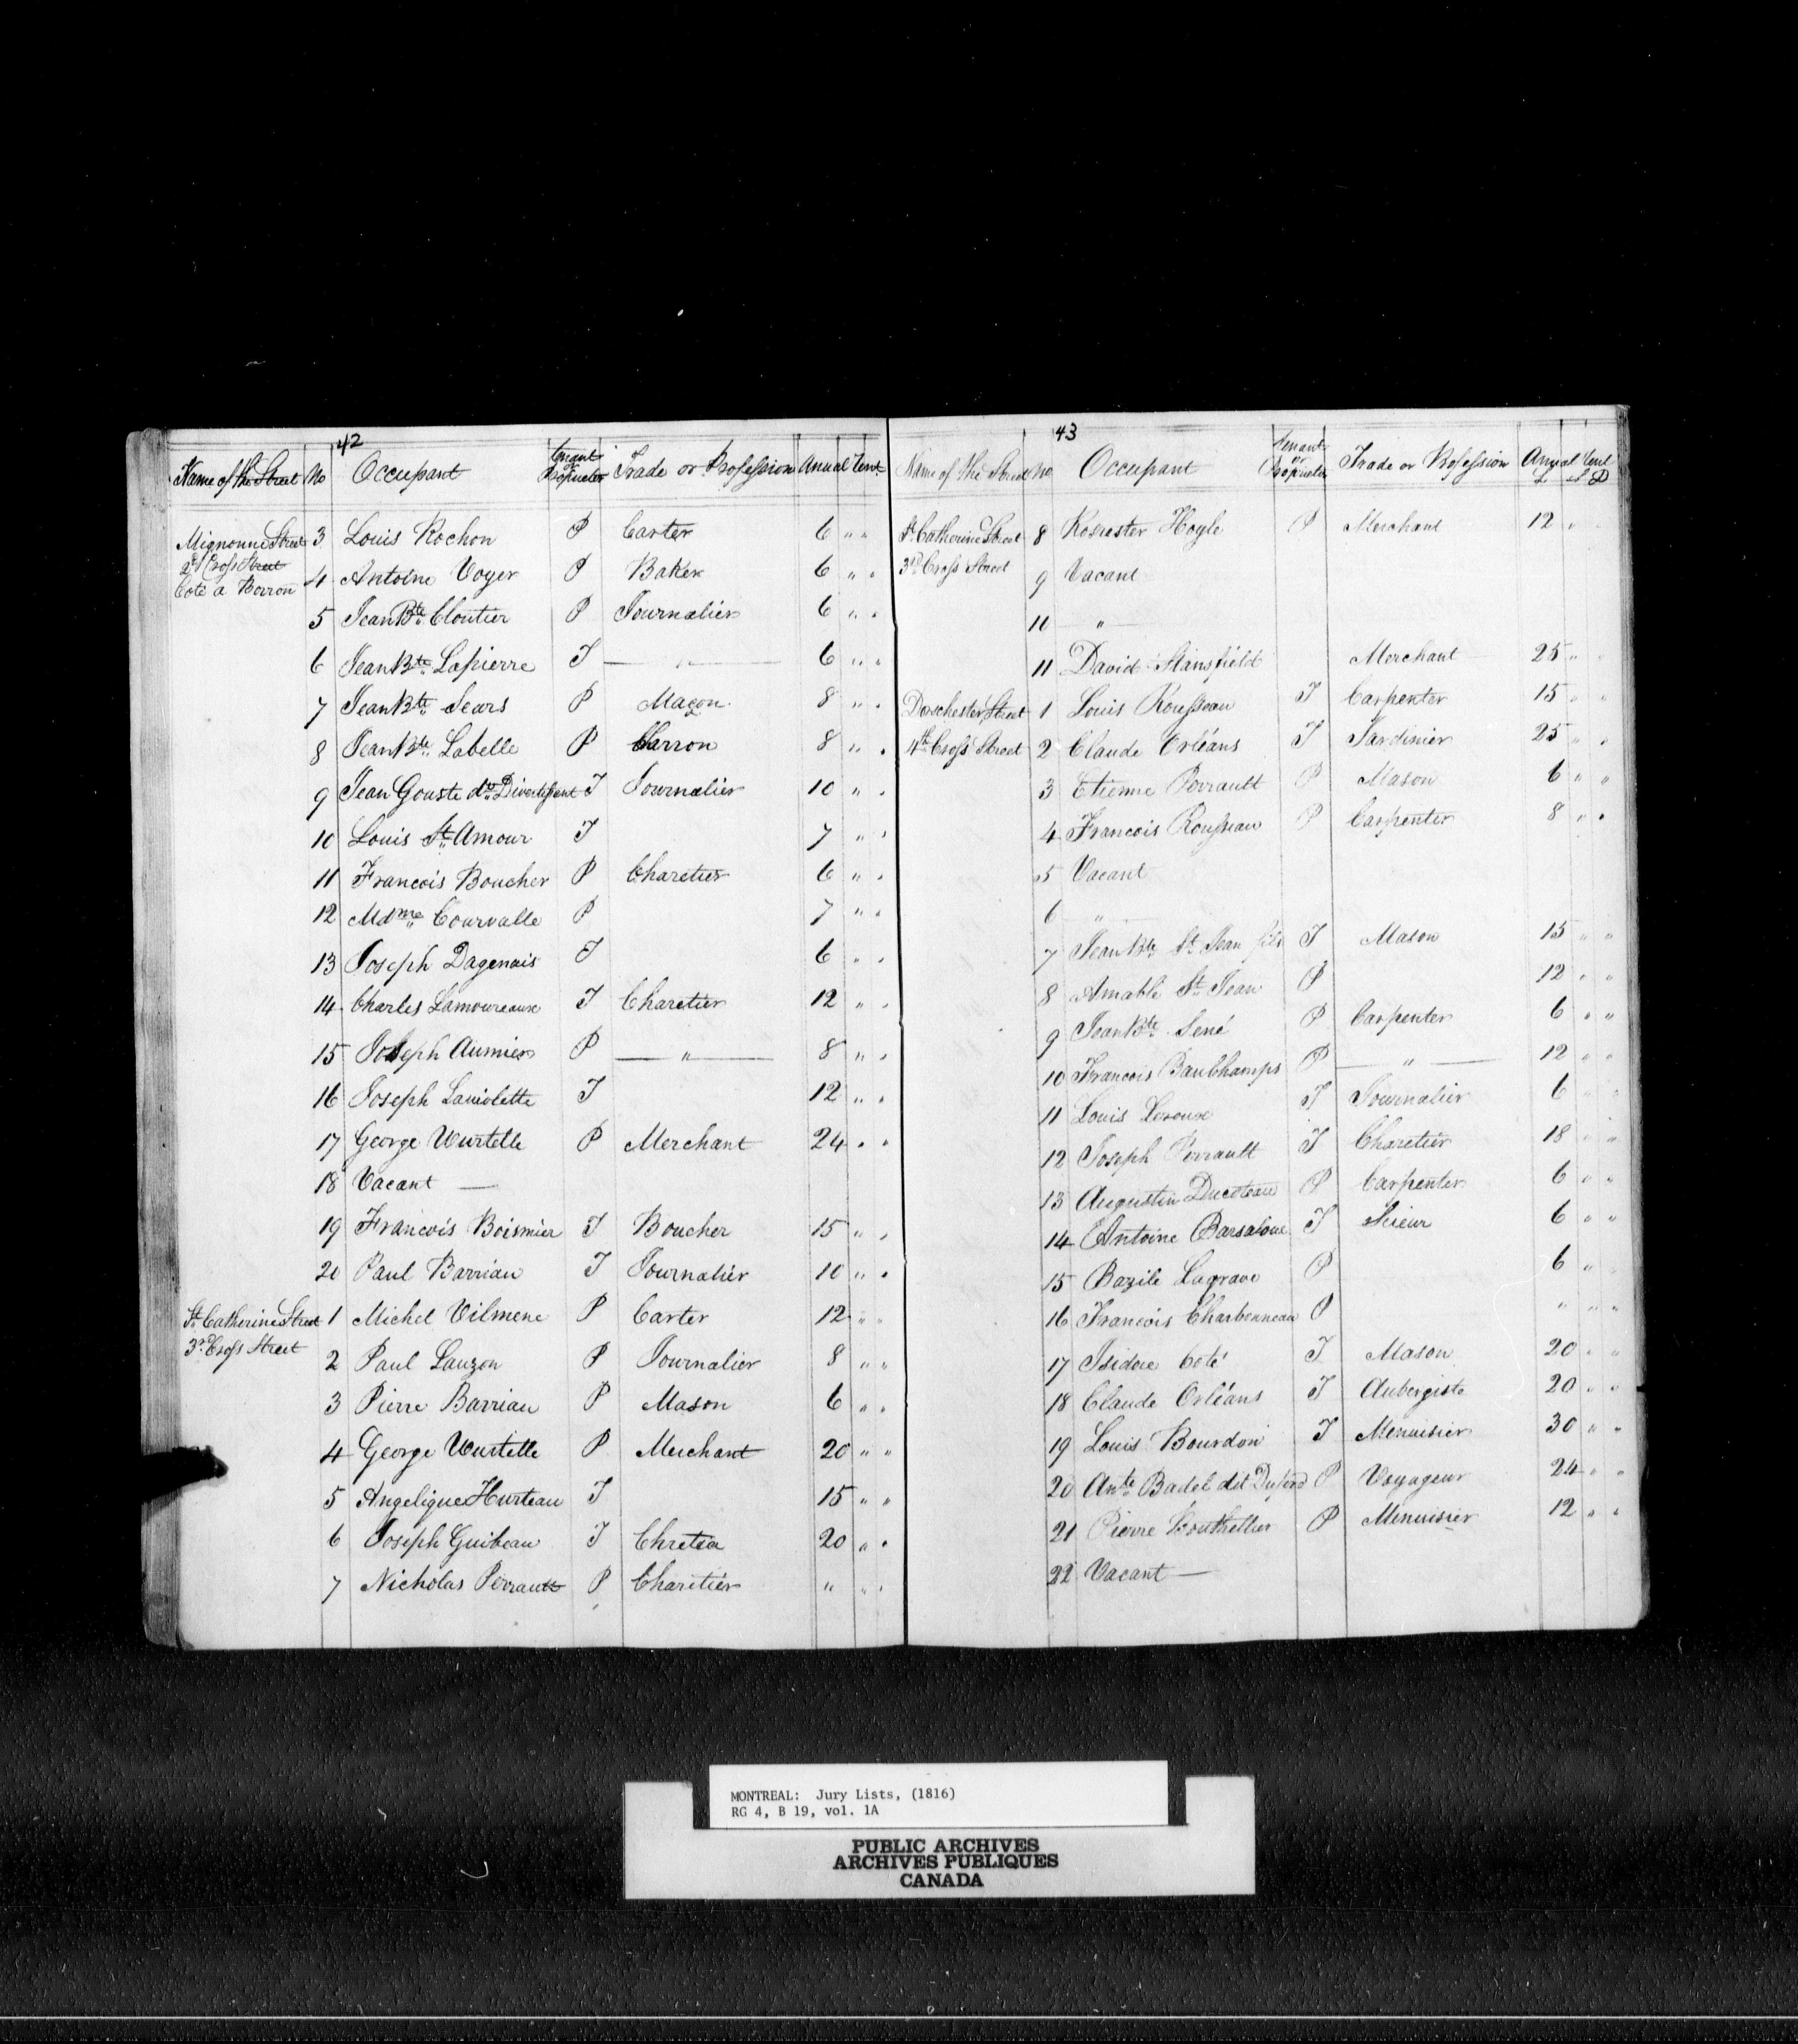 42
Name of the Street No Occupant Tenant or Proprietor Trade or Profession Annual Rent
Mignonne Street 3 Louis Rochon P Carter 6 " "
2d Cross Street
Coté a Barron 4 Antoine Voyer P Baker 6 " "
5 Jean Bte Cloutier P Journalier 6 " "
6 Jean Bte Lapierre T — " — 6 " "
7 Jean Bte Sears P Maçon 8 " "
8 Jean Bte Labelle P Charron 8 " "
9 Jean Gouste dit Divertissant T Journalier 10 " "
10 Louis St Amour T 7 " "
11 Francois Boucher P Charetier 6 " "
12 Mdme Courvalle P 7 " "
13 Joseph Dagenais T 6 " "
14 Charles Lamoureaux T Charetier 12 " "
15 Joseph Aumier P — " — 8 " "
16 Joseph Laviolette T 12 " "
17 George Wurtelle P Merchant 24 " "
18 Vacant —
19 Francois Boismier T Boucher 15 " "
20 Paul Barriau T Journalier 10 " "
St Catherine Street 1 Michel Vilmene P Carter 12 " "
3d Cross Street
2 Paul Lauzon P Journalier 8 " "
3 Pierre Barriau P Mason 6 " "
4 George Wurtelle P Merchant 20 " "
5 Angelique Hurteau T 15 " "
6 Joseph Guibeau T 20 " "
7 Nicholas Perrault P Charetier " " "
43
Name of the Street No Occupant Tenant or Proprietor Trade or Profession Annual Rent
L S D
St Catherine Street 8 Hoyle P Merchant 12 "
3rd Cross Street 9 Vacant
10 — " —
11 David Stansfield Merchant 25 "
Dorchester Street 1 Louis Rousseau T Carpenter 15 "
4th Cross Street 2 Claude Orléans T Jardinier 25 " "
3 Etienne Perrault P Mason 6 " "
4 Francois Rousseau P Carpenter 8 " "
5 Vacant
6 "
7 Jean Bte St Jean fils T Mason 15 " "
8 Amable St Jean P 12 " "
9 Jean Bte Sené P Carpenter 6 " "
10 Francois Beauchamps P — " — 12 " "
11 Louis Leroux T Journalier 6 " "
12 Joseph Perrault T Charetier 18 " "
13 Augustin Ducoteau P Carpenter 6 " "
14 Antoine Barsaloue T Scieur 6 " "
15 Bazile Lagrave P 6 "
16 Francois Charbonneau P " " "
17 Isidore Coté T Mason 20 " "
18 Claude Orléans T Aubergiste 20 " "
19 Louis Bourdon T Menuisier 30 " "
20 Ante Badel dit Duford P Voyageur 24 " "
21 Pierre Bouthellier P Menuisier 12 " "
22 Vacant —
MONTREAL: Jury Lists, (1816)
RG 4, B 19, vol. 1A
PUBLIC ARCHIVES
ARCHIVES PUBLIQUES
CANADA